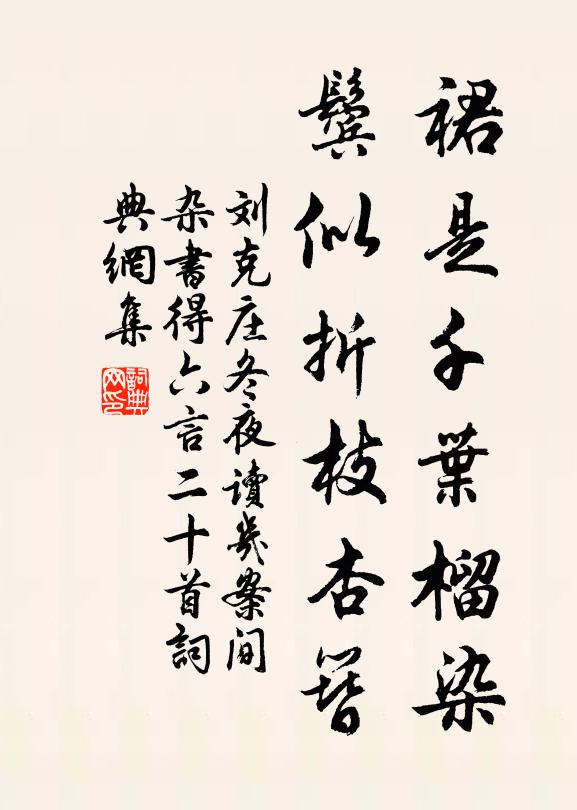 裙是千葉榴染
鬓似折枝杏簪
刘克庄冬夜讀幾案间
杂書得六言二十首詞
典網集
詞典網印